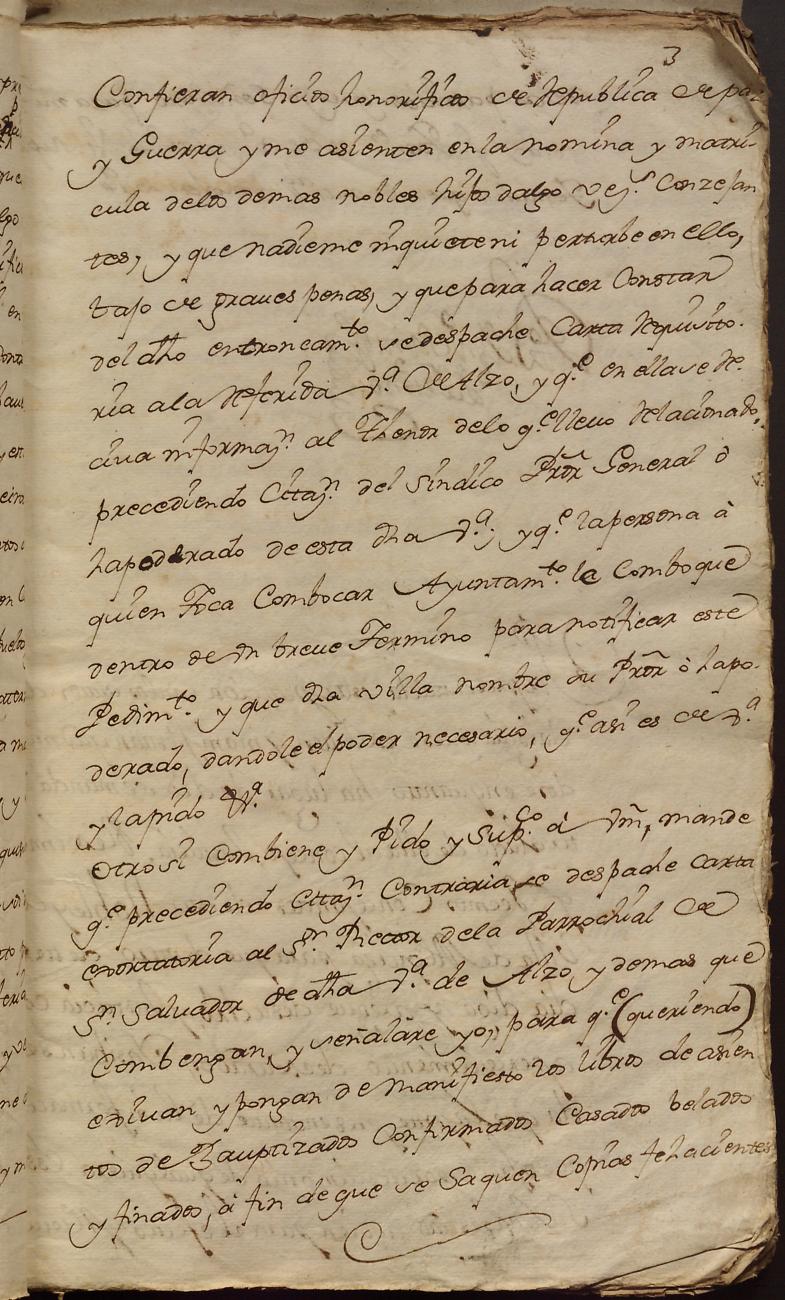 3
Confieran oficios honorificos de Republica de paz
y Guerra y me asienten en la nomina y matri-
cula de los demas nobles hijos dalgo vez.s Conzejan
tes, y que nadie me inquiete ni perturbe en ello,
bajo de graves penas, y que para hacer Constar
del dho entroncam.to se despache Carta Requisito-
ria a la Referida V.a de Alzo, y q.e en ella se Re-
civa informaz.n al Thenor de lo q.e llevo Relacionado,
precediendo Cittaz.n del Sindico Pror General ò
hapoderado de esta dha V.a; y q.e la persona à
quien Toca Combocar Ayuntam.to le Comboque
dentro de Un breve Termino para notificar este
Pedim.to y que dha villa nombre su Pror ò hapo-
derado, dandole el poder necesario, q.e asi es de V.a
y lo pido V.a
Otro si Combiene y Pido y Sup.co à Vm, mande
q.e precediendo Cittaz.n Contraria se despache Carta
exortatoria al S.r Rector de la Parrochial de
S.n Salvador de dha V.a de Alzo y demas que
Combengan, y señalare yo, para q.e (queriendo)
exivan y pongan de manifiesto los libros de asien
tos de Bauptizados Confirmados Casados belados
y finados, à fin de que se Saquen Copias fehacientes